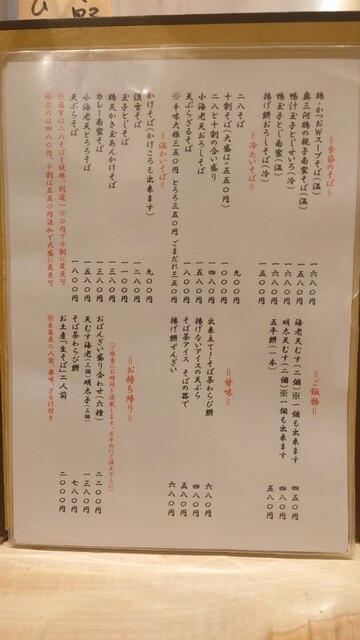 び 品
=季節のそば=
鶏・かつおWスープそば(温) 一六八〇円
奥三河鶏の親子南蛮そば(温) 一五八〇円
鴨汁玉子とじせいろ(冷) 一六八〇円
鴨玉子とじ南蛮(温) 一六八〇円
揚げ餅おろしそば(冷) 一五〇〇円
=冷たいそば=
二八そば 九〇〇円
十割そば(大盛は+五五〇円) 一〇〇〇円
二八と十割の合い盛り 一四八〇円
小海老天おろしそば 一五八〇円
天ぷらざるそば 一八〇〇円
※辛味大根三五〇円 とろろ三五〇円 ごまだれ三五〇円
=温かいそば=
かけそば(かけころも出来ます) 九〇〇円
淡雪そば 一二八〇円
玉子とじそば 一一〇〇円
鶏天かき玉あんかけそば 一三八〇円
カレー南蛮そば 一三八〇円
小海老天とろろそば 一五八〇円
天ぷらそば 一八〇〇円
※通常は二八そばを使用。別途一〇〇円で十割に変更可
※二八は四八〇円、十割は五五〇円追加で大盛に変更可
=ご飯物=
海老天むす(二個)※一個も出来ます 四五〇円
明太天むす(二個)※一個も出来ます 四八〇円
五平餅(一本) 五八〇円
=甘味=
出来立て!そば茶わらび餅 六八〇円
揚げないアイスの天ぷら 四八〇円
そば茶アイス そばの器で 五八〇円
揚げ餅ぜんざい 六八〇円
=お持ち帰り=
おばんざい盛り合わせ(六種) 二二〇〇円
天むす海老(三個)明太子(三個) 一三八〇円
そば茶わらび餅 七八〇円
お土産「生そば」二人前 二〇〇〇円